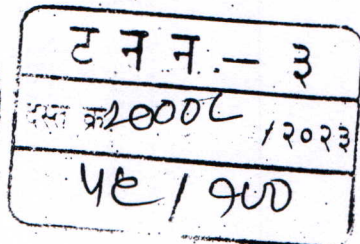 ट न न - ३
दस्त क्र २०००८ /२०२३
५९ / १७०